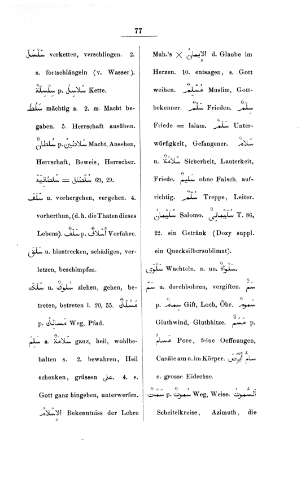 77
سَلْسَلَ vorketten, verschlingen. 2.
s. fortschlängeln (v. Wasser).
سِلْسِلَةٌ p. سَلَاسِلُ Kette.
سَلَّطَ mächtig s. 2. m. Macht be-
gaben. 5. Herrschaft ausüben.
سُلْطَانٌ p. سَلَاطِينُ Macht, Ansehen,
Herrschaft, Beweis, Herrscher.
سُلْطَانِيَهْ = سُلْطَانِي 69, 29.
سَلَفَ u. vorhergehen, vergehen. 4.
vorherthun, (d. h. die Thaten dieses
Lebens). سَلَفٌ p. أَسْلَافٌ Vorfahre.
سَلَقَ u. hinstrecken, schädigen, ver-
letzen, beschimpfen.
سَلَكَ u. ziehen, gehen, be-
treten, betreten l. 20, 55. مَسْلَكٌ
p. مَسَالِكُ Weg, Pfad.
سَلِمَ a. سَلَامَةٌ ganz, heil, wohlbe-
halten s. 2. bewahren, Heil
schenken, grüssen على. 4. s.
Gott ganz hingeben, unterwerfen.
الإِسْلَامُ Bekenntniss der Lehre
Muh.'s × الإِيمَانُ d. Glaube im
Herzen. 10. entsagen, s. Gott
weihen. مُسْلِمٌ Muslim, Gott-
bekenner. سِلْمٌ Frieden. سَلَامٌ
Friede = Islam. سَلَمٌ Unter-
würfigkeit, Gefangener. سَلَامٌ
u. سَلَامَةٌ Sicherheit, Lauterkeit,
Friede. سَلِيمٌ ohne Falsch, auf-
richtig. سُلَّمٌ Treppe, Leiter.
سُلَيْمَانُ Salomo. سُلَيْمَانِي T. 86,
22. ein Getränk (Dozy suppl.
ein Quecksilbersublimat).
سَلْوَى Wachteln. n. un. سَلْوَةٌ
سَمَّ u. durchbohren, vergiften. سَمٌّ
p. سُمُومٌ Gift, Loch, Öhr. سَمُومٌ
Gluthwind, Gluthhitze. سَمٌّ p.
مَسَامُّ Pore, feine Oeffnungen,
Canäle am u. im Körper. سَامُّ أَبْرَصَ
e. grosse Eidechse.
سَمْتٌ p. سُمُوتٌ Weg, Weise. السُّمُوتُ
Scheitelkreise, Azimuth, die